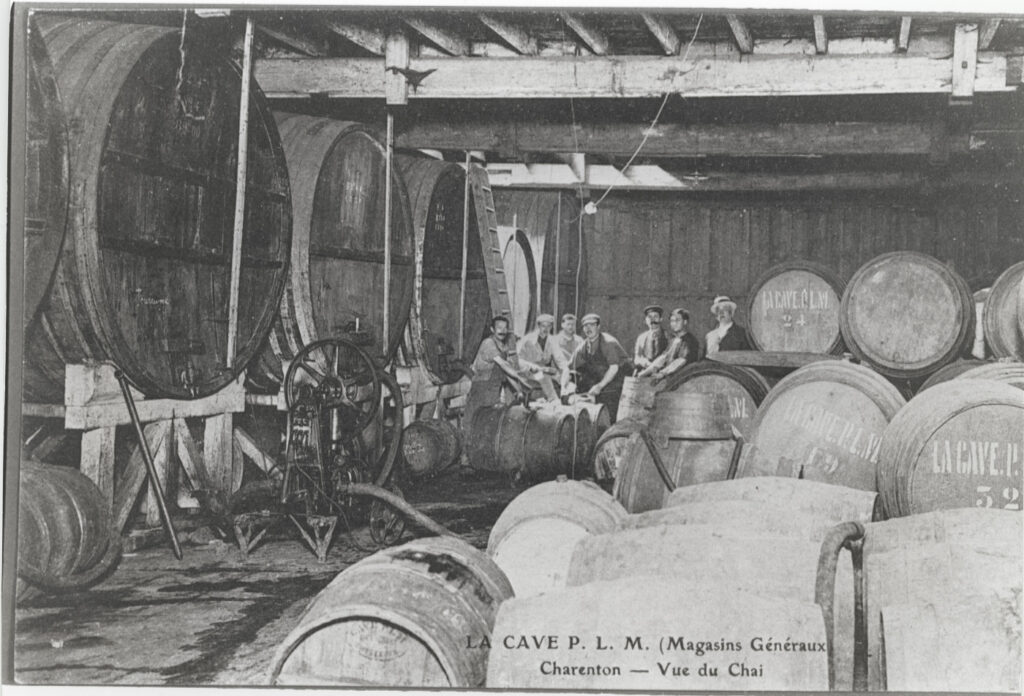 LA CAVE.P.L.M.
24
LA CAVE.P.L.M.
LA CAVE.P.
32
LA CAVE P. L. M. (Magasins Généraux
Charenton — Vue du Chai